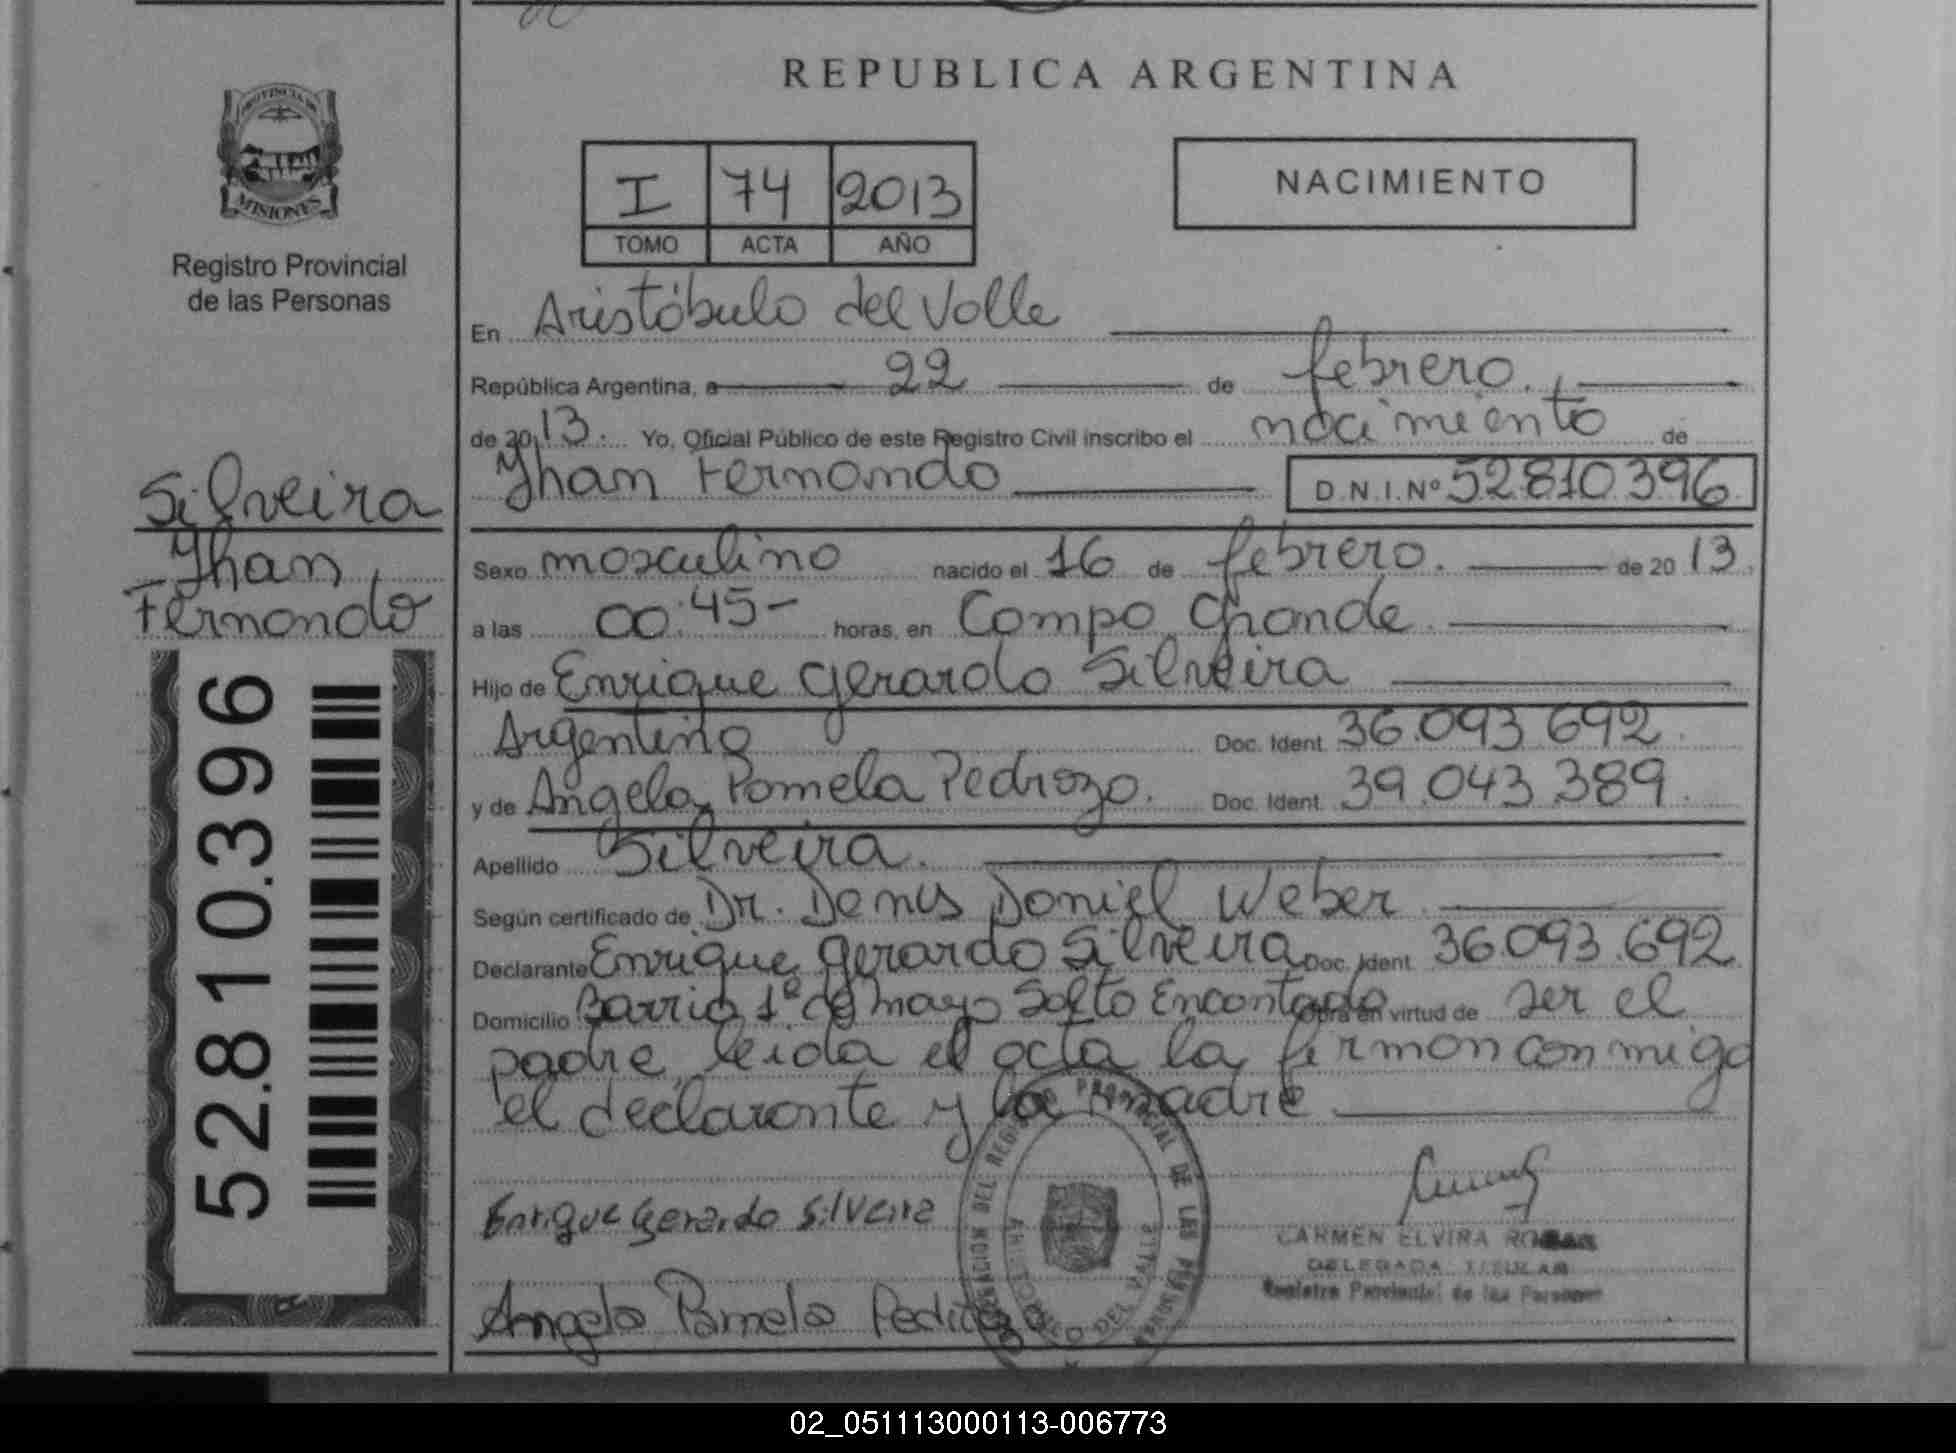 REPUBLICA ARGENTINA
PROVINCIA DE
MISIONES
Registro Provincial
de las Personas
I 74 2013
TOMO ACTA AÑO
NACIMIENTO
En Aristóbulo del Valle
República Argentina, a 22 de febrero.
de 2013. Yo, Oficial Público de este Registro Civil inscribo el nacimiento de
Jhan Fernando D.N.I.Nº 52810396
Silveira
Jhan
Fernando
52.810.396
Sexo masculino nacido el 16 de febrero. de 2013.
a las 00:45- horas, en Campo Grande
Hijo de Enrique Gerardo Silveira
Argentino Doc. Ident. 36.093.692.
y de Angela Pamela Pedrozo. Doc. Ident. 39.043.389.
Apellido Silveira.
Según certificado de Dr. Denis Daniel Weber
Declarante Enrique Gerardo Silveira Doc. Ident. 36.093.692
Domicilio Barrio 1º de mayo Salto Encantado Obra en virtud de ser el
padre, leida el acta la firman conmigo
el declarante y la madre
Enrique Gerardo Silveira
Angela Pamela Pedrozo
CARMEN ELVIRA
DELEGADA TITULAR
Registro Provincial de las Personas
02_051113000113-006773